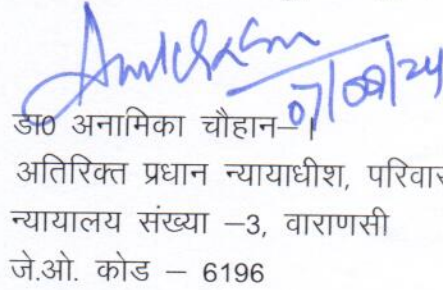 07/08/24
डा0 अनामिका चौहान–।
अतिरिक्त प्रधान न्यायाधीश, परिवार
न्यायालय संख्या –3, वाराणसी
जे.ओ. कोड – 6196